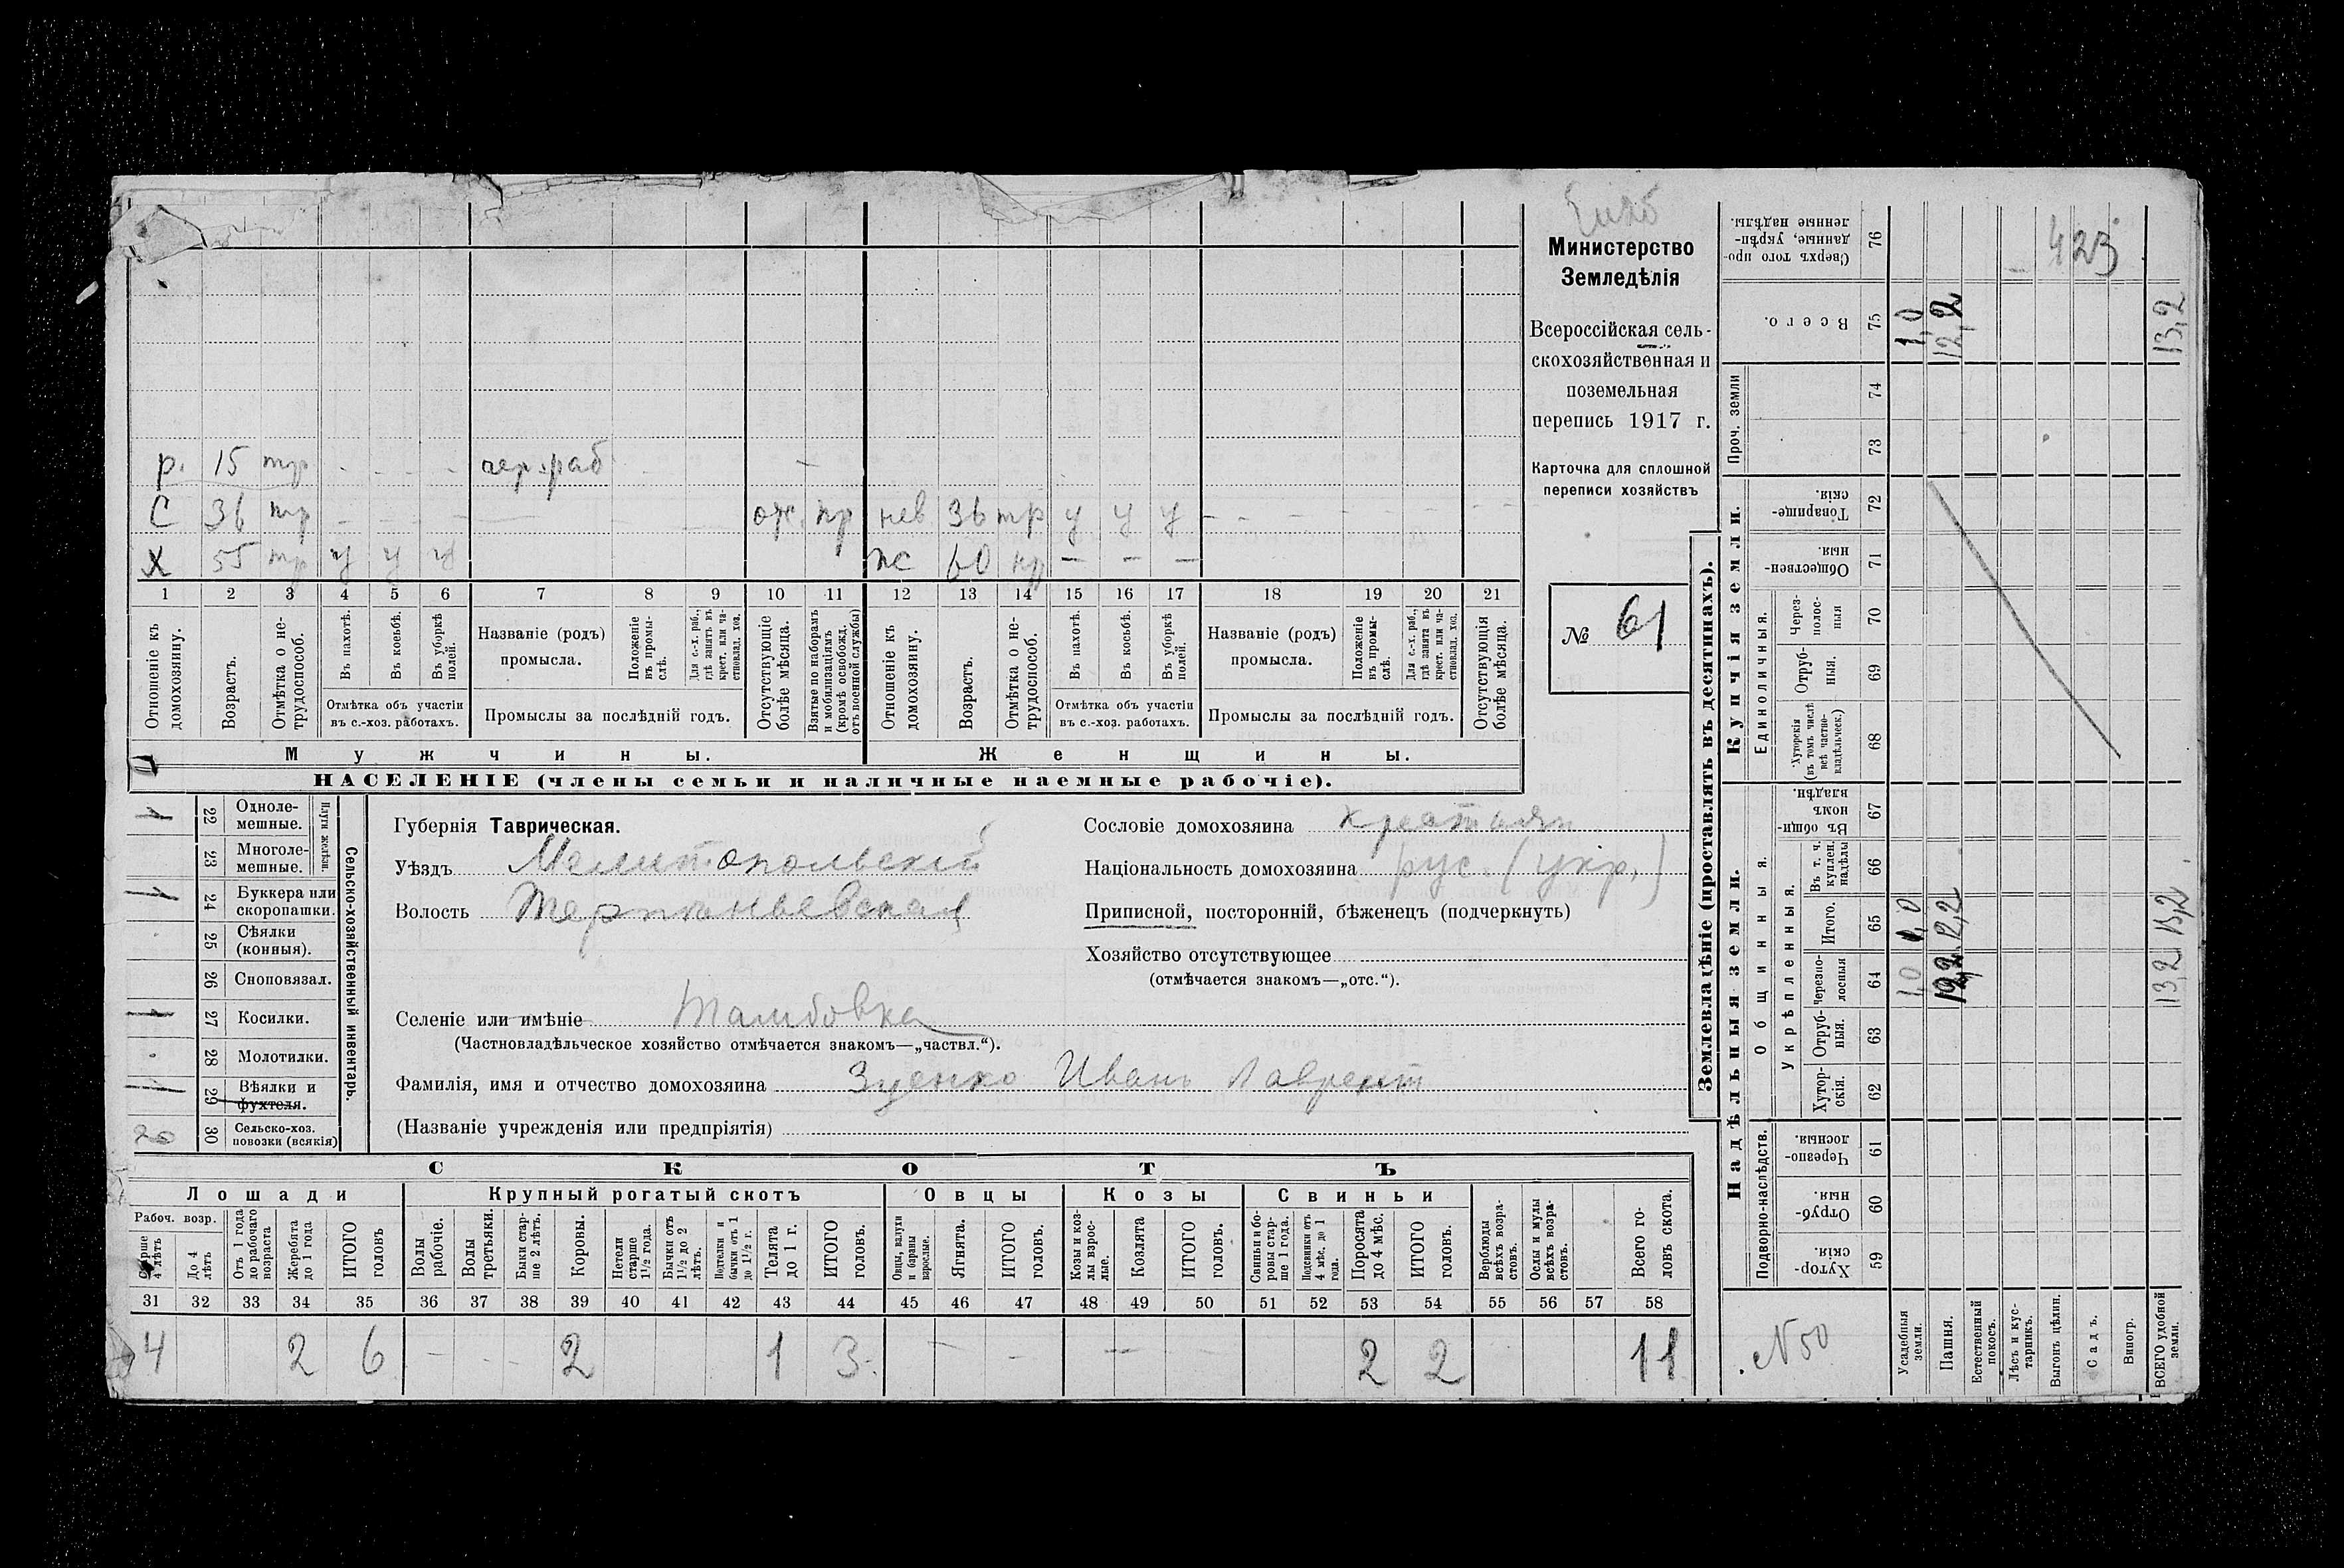 Министерство
Земледѣлія
Всероссійская сель-
скохозяйственная и
поземельная
перепись 1917 г.
Карточка для сплошной
переписи хозяйствъ
№ 61
р. 15 тр - - - чер. раб -
С 36 тр - - - от. пр нев 36 тр у у у - - - -
Х 55 тр у у у ж 60 нр — — —
1 2 3 4 5 6 7 8 9 10 11 12 13 14 15 16 17 18 19 20 21
Отношеніе къ домохозяину.
Возрастъ.
Отмѣтка о не-трудоспособ.
Въ пахотѣ.
Въ косьбѣ.
Въ уборкѣ полей.
Отмѣтка объ участіи въ с.-хоз. работахъ.
Названіе (родъ) промысла.
Положеніе въ промы-слѣ.
Для с.-х. раб., гдѣ занятъ въ крест. или ча-стновлад. хоз.
Промыслы за послѣдній годъ.
Отсутствующіе болѣе мѣсяца.
Взятые по наборамъ и мобилизаціямъ (кромѣ освобожд. отъ военной службы)
Отношеніе къ домохозяину.
Возрастъ.
Отмѣтка о не-трудоспособ.
Въ пахотѣ.
Въ косьбѣ.
Въ уборкѣ полей.
Отмѣтка объ участіи въ с.-хоз. работахъ.
Названіе (родъ) промысла.
Положеніе въ промы-слѣ.
Для с.-х. раб., гдѣ занята въ крест. или ча-стновлад. хоз.
Промыслы за послѣдній годъ.
Отсутствующія болѣе мѣсяца.
Мужчины. Женщины.
НАСЕЛЕНІЕ (члены семьи и наличные наемные рабочіе).
Сельско-хозяйственный инвентарь.
Плуги желѣзн.
1 22 Одноле-мешные.
23 Многоле-мешные.
1 24 Буккера или скоропашки.
25 Сѣялки (конныя).
26 Сноповязал.
1 27 Косилки.
28 Молотилки.
1 29 Вѣялки и фухтеля.
30 Сельско-хоз. повозки (всякія)
Губернія Таврическая.
Уѣздъ Мелитопольскій
Волость Терпеньевская
Селеніе или имѣніе Тамбовка
(Частновладѣльческое хозяйство отмѣчается знакомъ—„частвл.“).
Фамилія, имя и отчество домохозяина Зуенко Иванъ Лаврент
(Названіе учрежденія или предпріятія)
Сословіе домохозяина крестьян
Національность домохозяина рус. (укр.)
Приписной, посторонній, бѣженецъ (подчеркнуть)
Хозяйство отсутствующее
(отмѣчается знакомъ—„отс.“).
СКОТЪ
Лошади Крупный рогатый скотъ Овцы Козы Свиньи
Рабоч. возр.
Старше 4 лѣтъ
До 4 лѣтъ
Отъ 1 года до рабочаго возраста
Жеребята до 1 года
ИТОГО головъ
Волы рабочіе.
Волы третьяки.
Быки стар-ше 2 лѣтъ.
Коровы.
Нетели старше 1½ года.
Бычки отъ 1½ до 2 лѣтъ.
Подтелки и бычки отъ 1 до 1½ г.
Телята до 1 г.
ИТОГО головъ.
Овцы, валухи и бараны взрослые.
Ягнята.
ИТОГО головъ.
Козы и коз-лы взрос-лые.
Козлята
ИТОГО головъ.
Свиньи и бо-ровы стар-ше 1 года.
Подсвинки отъ 4 мѣс. до 1 года.
Поросята до 4 мѣс.
ИТОГО головъ.
Верблюды всѣхъ возра-стовъ.
Ослы и мулы всѣхъ возра-стовъ.
Всего го-ловъ скота.
31 32 33 34 35 36 37 38 39 40 41 42 43 44 45 46 47 48 49 50 51 52 53 54 55 56 57 58
4 2 6 - - - 2 1 3 - - — 2 2 11
Землевладѣніе (проставлять въ десятинахъ).
Надѣльныя земли. Купчія земли.
Подворно-наслѣдств.
Общинныя.
Укрѣпленныя.
Единоличныя.
Проч. земли
59 Хутор-скія.
60 Отруб-ныя.
61 Черезпо-лосныя.
62 Хутор-скія.
63 Отруб-ныя.
64 Черезпо-лосныя
65 Итого.
66 Въ т. ч. куплен. надѣлы
67 Въ общи-номъ владѣн.
68 Хуторскія (въ томъ числѣ всѣ частно-владѣльческ.)
69 Отруб-ныя.
70 Через-полос-ныя
71 Обществен-ныя
72 Товарище-скія.
73
74
75 Всего.
76 Сверхъ того про-данные, укрѣп-ленные надѣлы.
423
№ 50
Усадебныя земли. 1,0 1,0 1,0
Пашня. 12,2 12,2 12,2
Естественный покосъ.
Лѣсъ и кус-тарникъ.
Выгонъ, цѣлин.
Садъ.
Виногр.
ВСЕГО удобной земли. 13,2 13,2 13,2